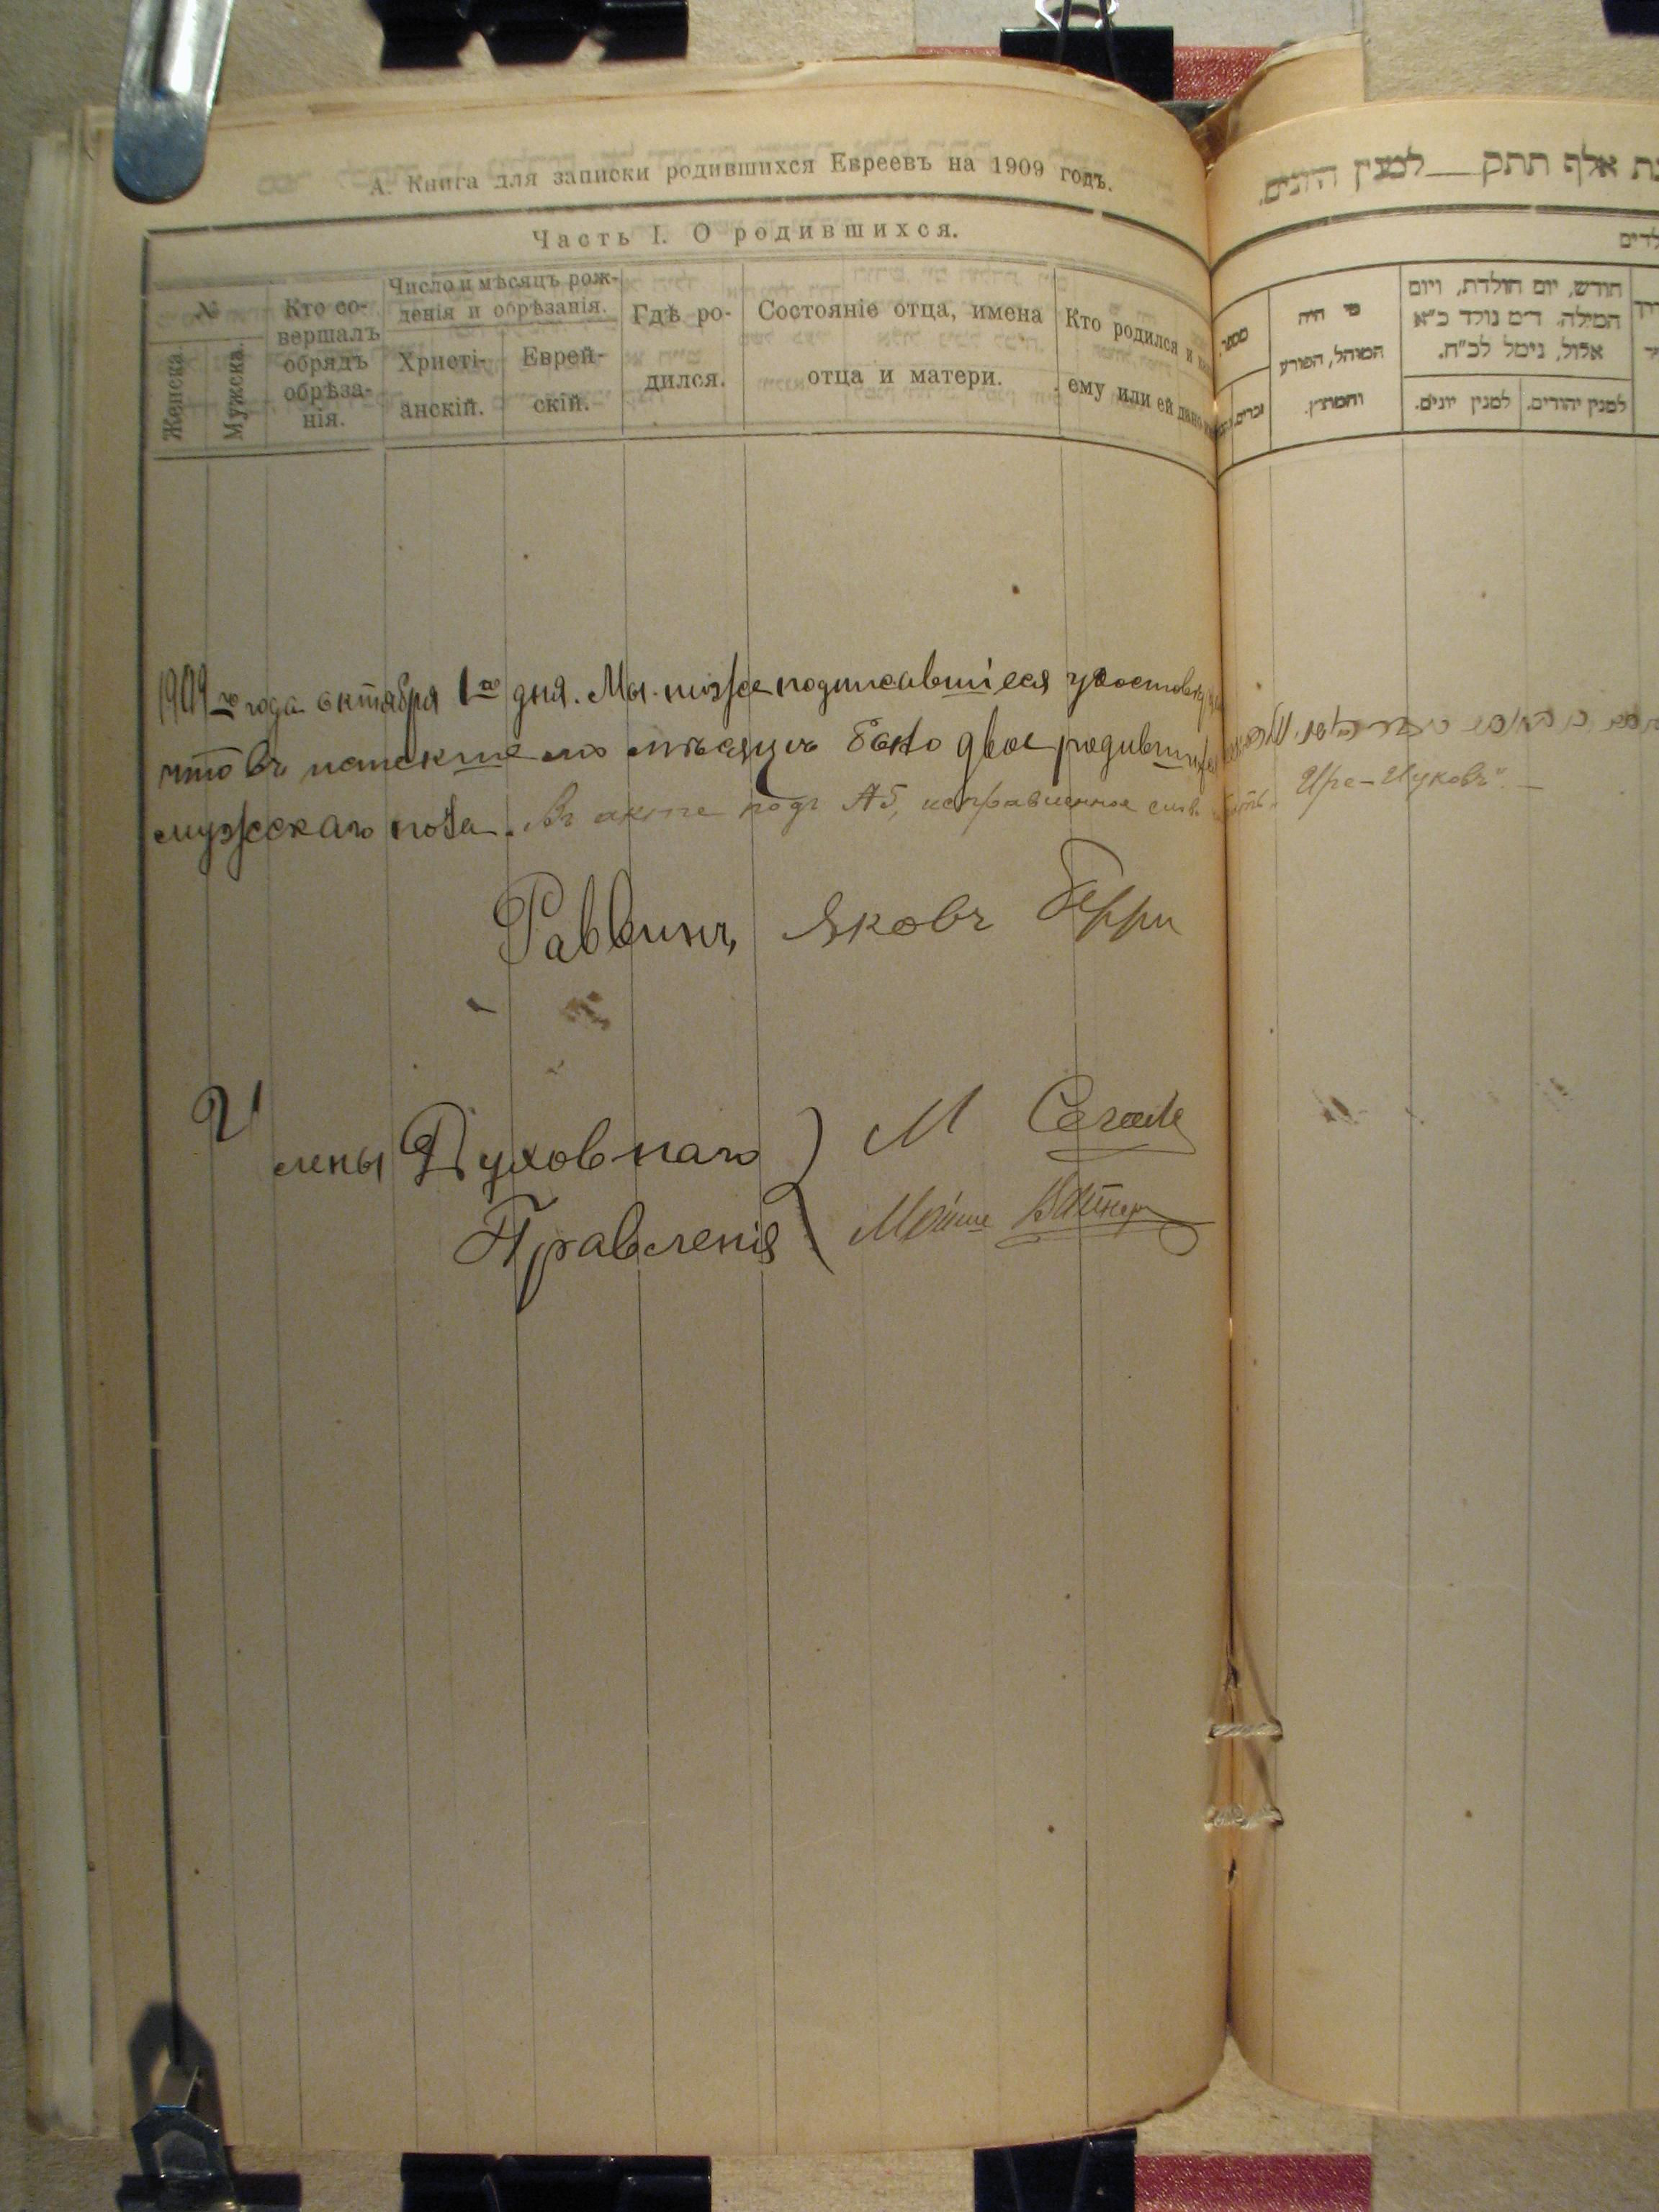 А. Книга для записки родившихся Евреевъ на 1909 годъ.
Часть I. О родившихся.
№
Женска.
Мужска.
Кто со-
вершалъ
обрядъ
обрѣза-
нія.
Число и мѣсяцъ рож-
денія и обрѣзанія.
Христі-
анскій.
Еврей-
скій.
Гдѣ ро-
дился.
Состояніе отца, имена
отца и матери.
Кто родился и
ему или ей дано
1909 го года октября 1 го дня. Мы нижеподписавшіеся удостовѣр
что въ истекшемъ мѣсяцѣ было двое родивши
мужескаго пола. Въ актѣ подъ №5, исправленное слов "Ире-Ицковъ".
Раввинъ Яковъ Берри
Члены Духовнаго М Сегаль
Правленія
ת אלף תתק___למנין היונים.
לדים
מספר.
זכרים.
מי היה
המוהל, הפורע
והמוצץ.
חודש, יום הולדת, ויום
המילה. ד״מ נולד כ״א
אלול, נימל לכ״ח.
למנין יונים.
למנין יהודים.